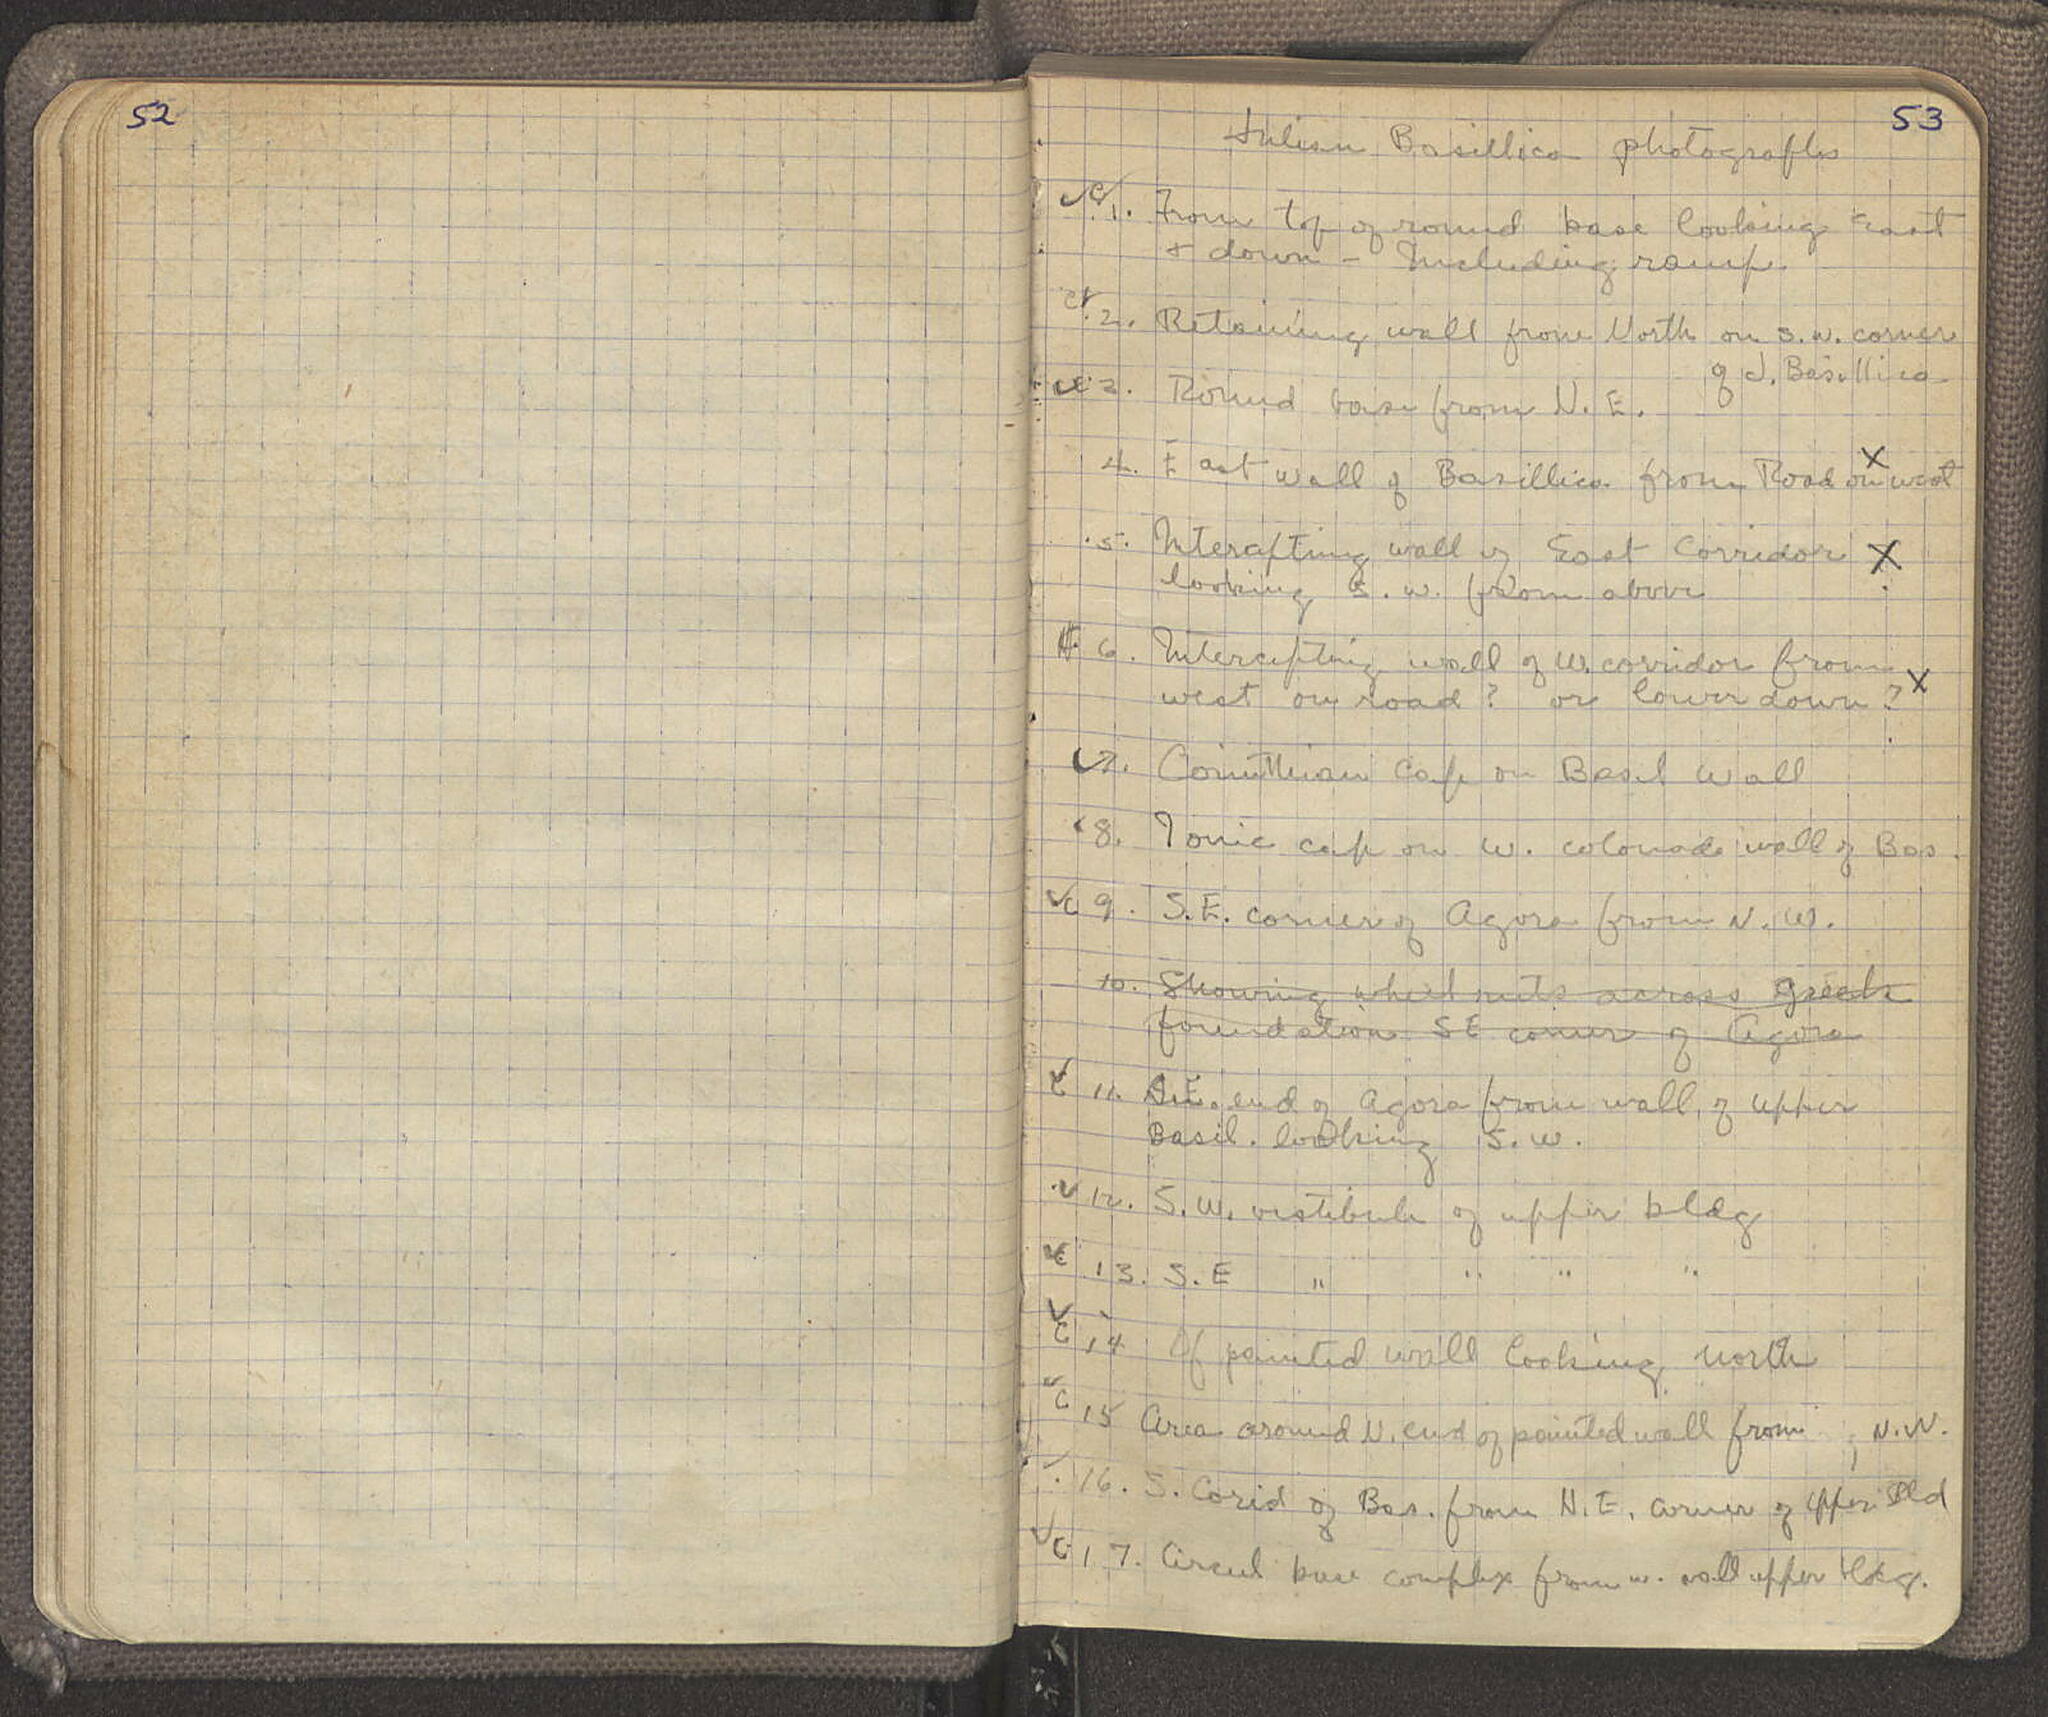 52
53
Julian Basillica photographs
✓c 1. From top of round base looking East
& down - Including ramp.
c✓ 2. Retaining wall from North on S.W. corner
of J. Basillica
✓c 3. Round base from N.E.
4. East wall of Basillica from Road on west X
5. Intercepting wall of East Corridor X
looking S.W. from above
6. Intercepting wall of W. corridor from
west on road? or lower down? X
✓7. Corinthian Cap on Basil Wall
8. Ionic cap on W. colonade wall of Bas.
✓c 9. S.E. corner of Agora from N.W.
10. Showing wheel ruts across Greek
foundation SE corner of Agora
✓c 11. end of Agora from wall of upper
Basil. looking S.W.
✓ 12. S.W. vestibule of upper bldg
✓c 13. S.E " " " "
✓c 14 Of painted wall looking North
✓c 15 Area around N. end of painted wall from N.W.
✓ 16. S. Corid of Bas. from N.E. corner of upper Bld
✓c 17. Circul base complex from w. wall upper bldg.